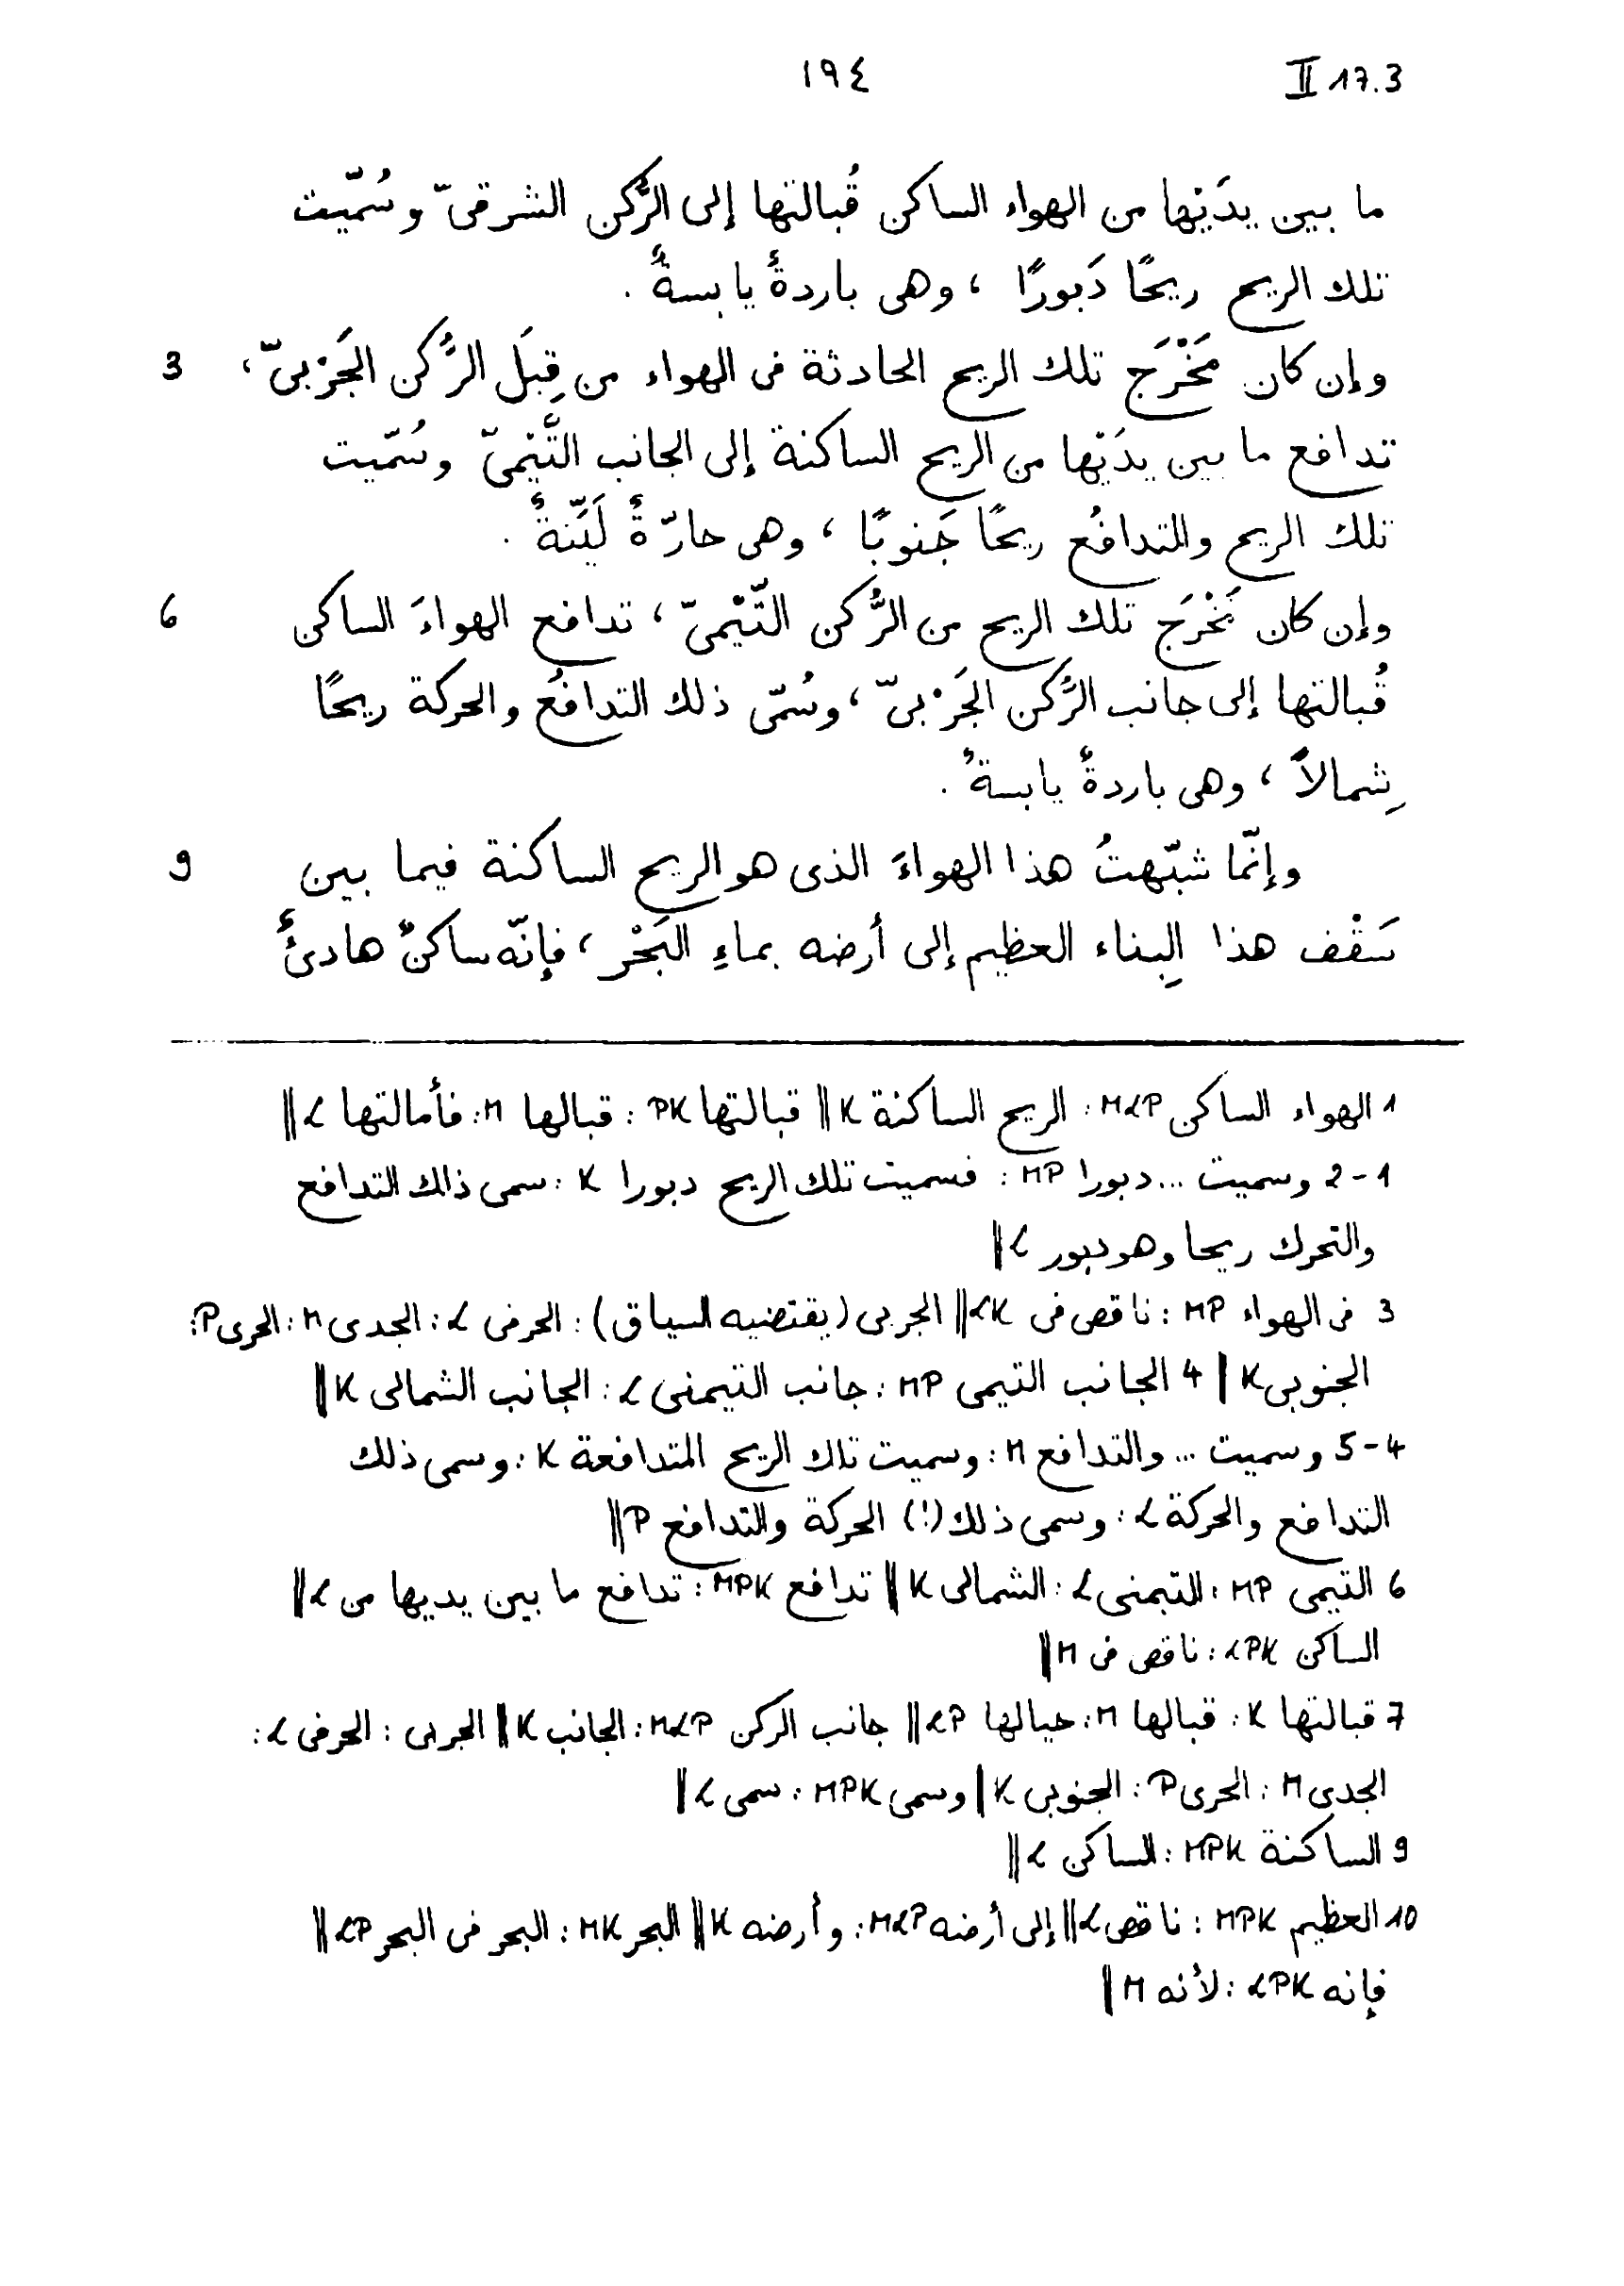 ١٩٤ II 17.3
ما بين يدَيْها من الهواء الساكن قُبالتها إلى الرُّكن الشرقىّ وسُمّيت
تلك الريح ريحًا دَبورًا ، وهى باردةٌ يابسةٌ .
وإن كان مَخْرَج تلك الريح الحادثة فى الهواء من قِبَل الرُّكن الجَرْبىّ ، 3
تدافع ما بين يدَيْها من الريح الساكنة إلى الجانب التَّيْمىّ وسُمّيت
تلك الريح والتدافُع ريحًا جَنوبًا ، وهى حارّةٌ لَيّنةٌ .
وإن كان مَخْرَج تلك الريح من الرُّكن التَّيْمىّ ، تدافع الهواءَ الساكن 6
قُبالتها إلى جانب الرُّكن الجَرْبىّ ، وسُمّى ذلك التدافُع والحركة ريحًا
شِمالاً ، وهى باردةٌ يابسةٌ .
وإنّما شبّهتُ هذا الهواءَ الذى هو الريح الساكنة فيما بين 9
سَقْف هذا البِناء العظيم إلى أرضه بماءِ البَحْر ، فإنّه ساكنٌ هادئٌ
1 الهواء الساكن MLP : الريح الساكنة K || قبالتها PK : قبالها M : فأمالتها L ||
1-2 وسميت ... دبورا MP : فسميت تلك الريح دبورا K : سمى ذاك التدافع
والتحرك ريحا وهو دبور L ||
3 فى الهواء MP : ناقص فى LK || الجربى (يقتضيه السياق) : الحرفى L : الجدى M : الحرى P :
الجنوبى K || 4 الجانب التيمى MP : جانب التيمنى L : الجانب الشمالى K ||
4-5 وسميت ... والتدافع M : وسميت تلك الريح المتدافعة K : وسمى ذلك
التدافع والحركة L : وسمى ذلك (!) الحركة والتدافع P ||
6 التيمى MP : التيمنى L : الشمالى K || تدافع MPK : تدافع ما بين يديها من L ||
الساكن LPK : ناقص فى M ||
7 قبالتها K : قبالها M : حيالها LP || جانب الركن MLP : الجانب K || الجربى : الحرفى L :
الجدى M : الحرى P : الجنوبى K || وسمى MPK : سمى L ||
9 الساكنة MPK : الساكن L ||
10 العظيم MPK : ناقص L || إلى أرضه MLP : وأرضه K || البحر MK : البحر فى البحر LP ||
فإنه LPK : لأنه M ||